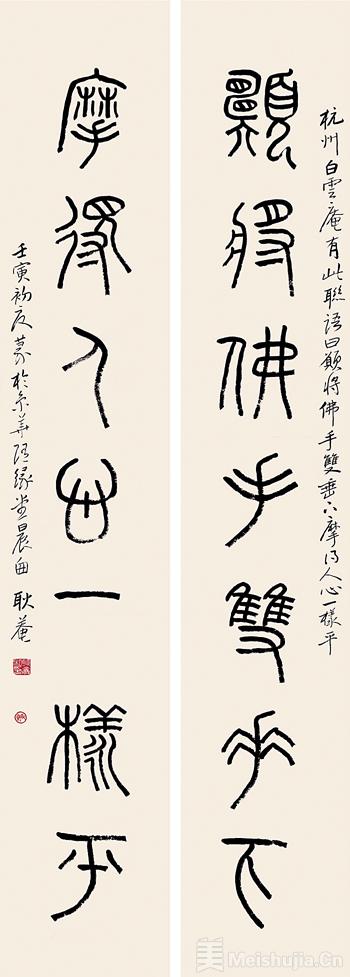 杭州白雲庵有此聯語曰願將佛手雙垂下摩得人心一樣平
願將佛手雙垂下
摩得人心一樣平
壬寅初夏篆於京華隨緣堂晨曲 耿菴
美 Meishujia.Cn